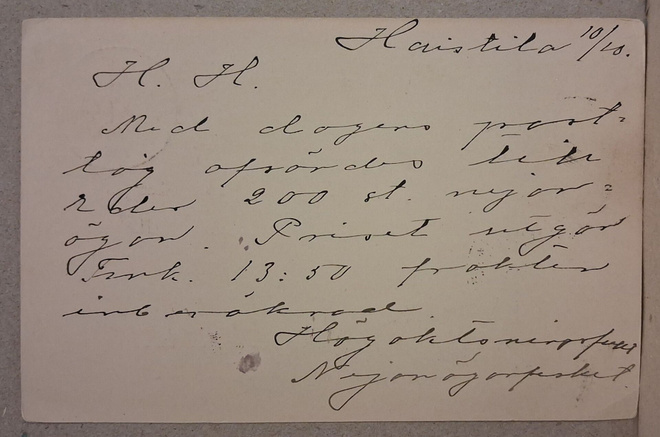 Haistila 10/10.
H. H.
Med dagens post=
tåg afsändes till
Eder 200 st. nejon=
ögon. Priset utgör
Fmk. 13:50 frakten
inberäknad.
Högaktningsfullt
Nejonögonfisket.